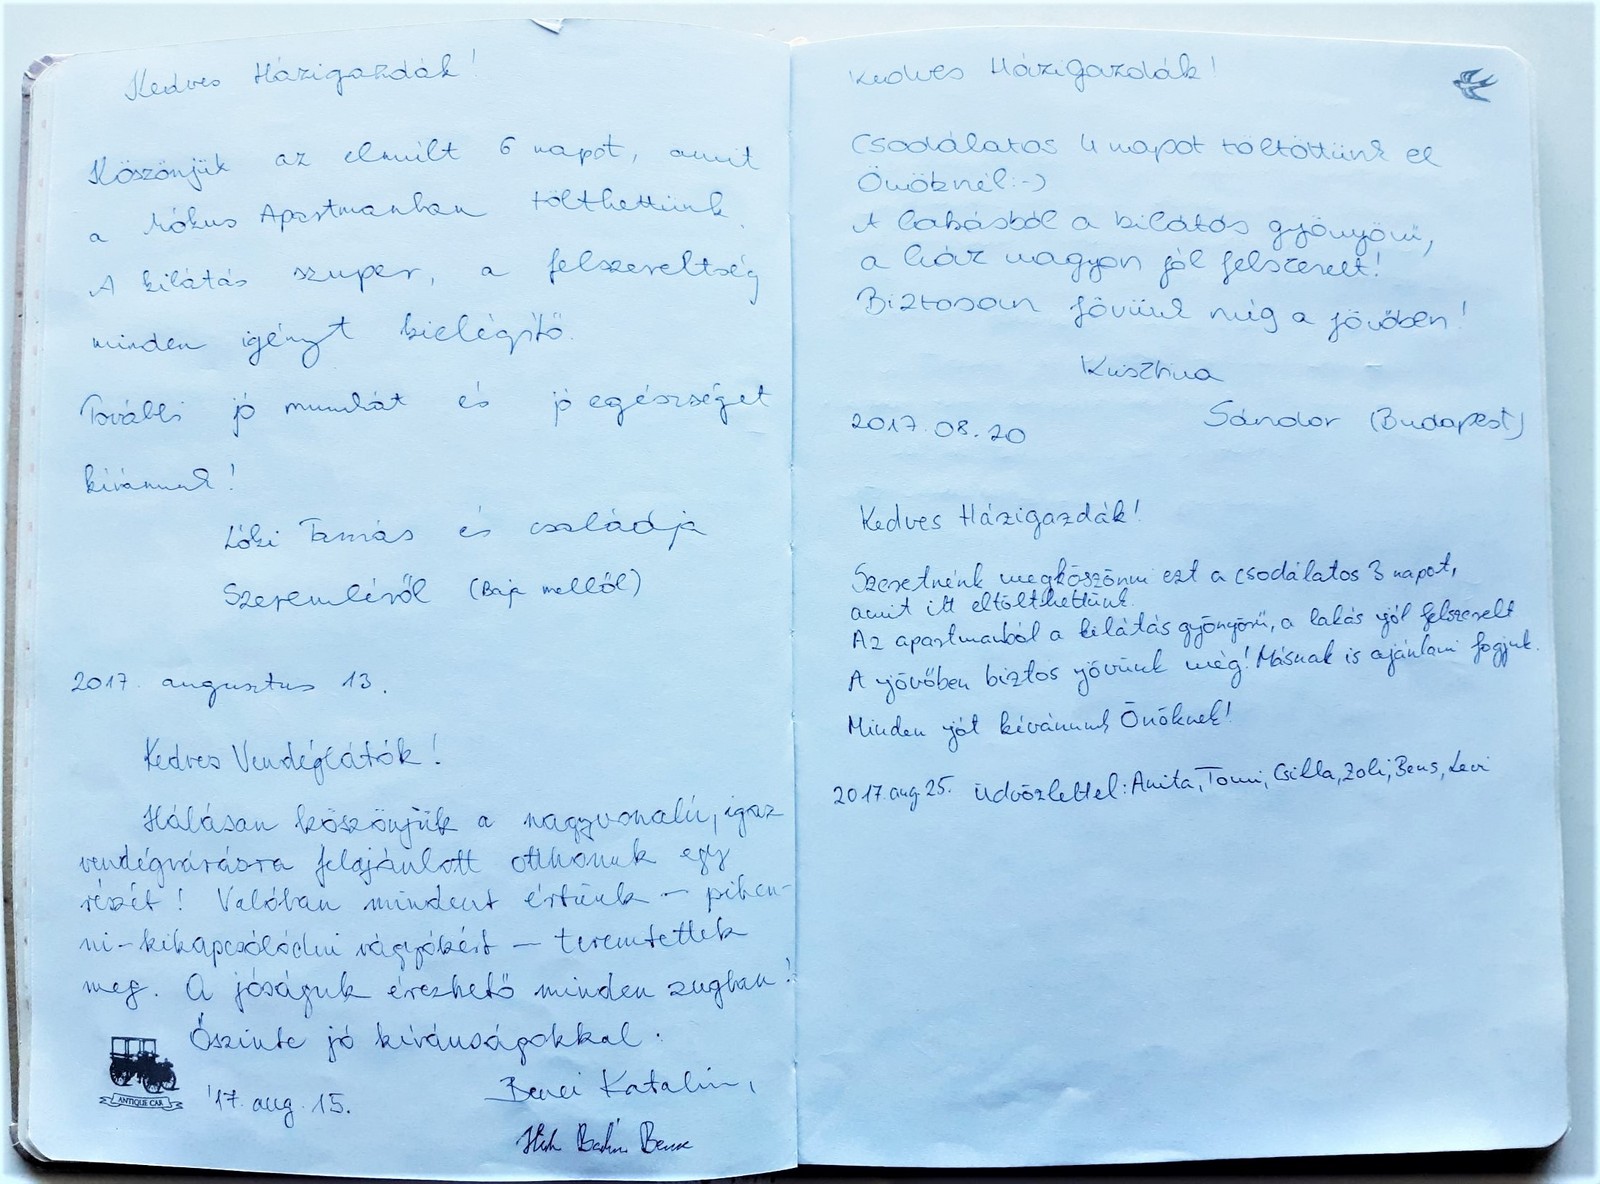 Kedves Házigazdák!
Köszönjük az elmúlt 6 napot, amit
a Mókus Apartmanban tölthettünk.
A kilátás szuper, a felszereltség
minden igényt kielégítő.
További jó munkát és jó egészséget
kívánunk!
Lóki Tamás és családja
Szeremléről (Baja mellől)
2017. augusztus 13.
Kedves Vendéglátók!
Hálásan köszönjük a nagyvonalú, igaz
vendégvárásra felajánlott otthonuk egy
részét! Valóban mindent értünk – pihen-
ni-kikapcsolódni vágyókért – teremtettek
meg. A jóságuk érezhető minden zugban!
Őszinte jó kívánságokkal:
ANTIQUE CAR
'17. aug. 15.
Katalin,
Bence
Kedves Házigazdák!
Csodálatos 4 napot töltöttünk el
Önöknél:-)
A lakásból a kilátás gyönyörű,
a ház nagyon jól felszerelt!
Biztosan jövünk még a jövőben!
Krisztina
Sándor (Budapest)
2017.08.20
Kedves Házigazdák!
Szeretnénk megköszönni ezt a csodálatos 3 napot,
amit itt eltölthettünk.
Az apartmanból a kilátás gyönyörű, a lakás jól felszerelt
A jövőben biztos jövünk még! Másnak is ajánlani fogjuk.
Minden jót kívánunk Önöknek!
2017. aug. 25. Üdvözlettel: Anita, Tomi, Csilla, Zoli, Bens, Levi